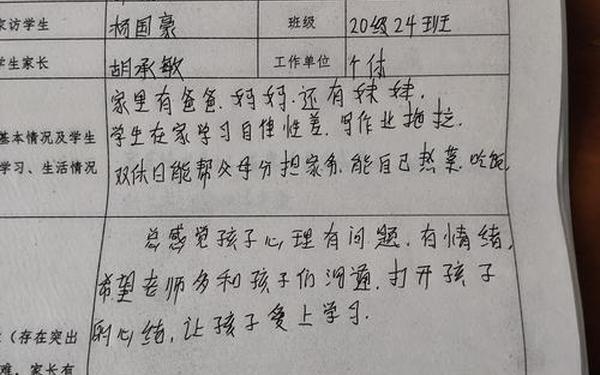 家访学生 杨国豪 班级 20级24班
学生家长 胡承敏 工作单位 个体
家里有爸爸.妈妈.还有妹妹.
学生在家学习自律性差.写作业拖拉.
基本情况及学生
学习、生活情况
双休日能帮父母分担家务.能自己热菜.吃饭
总感觉孩子心理有问题.有情绪,
希望老师多和孩子们沟通.打开孩子
的心结,让孩子爱上学习.
(存在突出
难,家长有